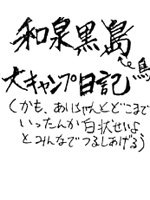 和泉黒島
鳥
大キャンプ日記
(かも、あいはんとどこまで
いったんか白状せいよ
とみんなでつるしあげる)